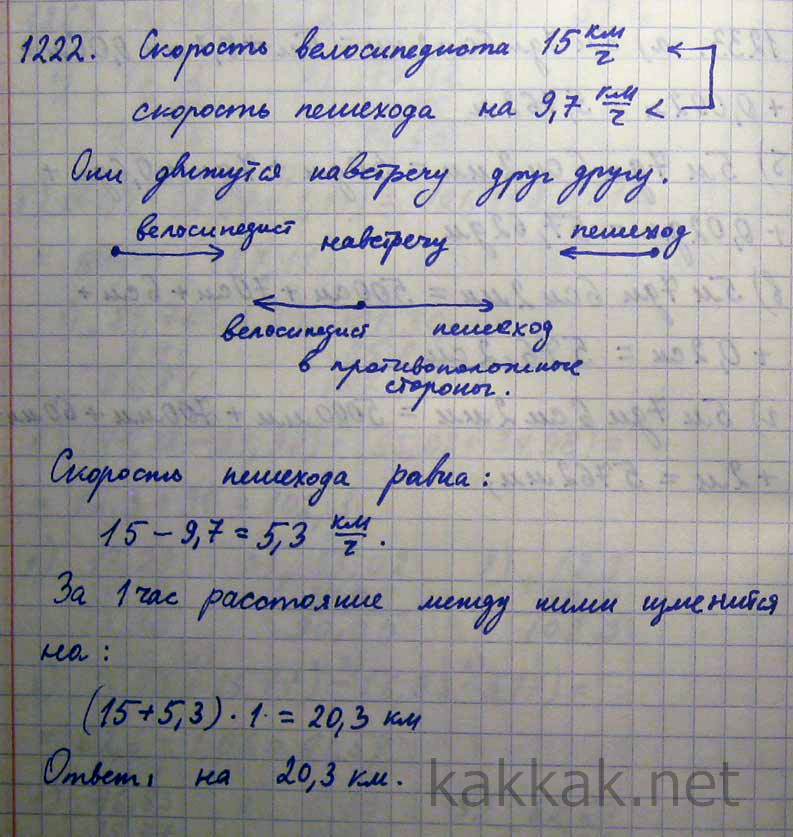 1222. Скорость велосипедиста 15 км/ч <
скорость пешехода на 9,7 км/ч <
Они движутся навстречу друг другу.
велосипедист навстречу пешеход
велосипедист пешеход
в противоположные
стороны.
Скорость пешехода равна:
15 − 9,7 = 5,3 км/ч.
За 1 час расстояние между ними изменится
на:
(15+5,3) · 1 = 20,3 км
Ответ: на 20,3 км.
kakkak.net